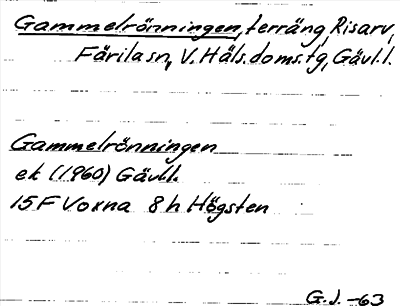 Gammelrönningen, terräng, Risarv,
Färila sn, V. Häls. doms.tg, Gävl.l.
Gammelrönningen
ek (1960) Gävl.l.
15F Voxna 8h Högsten
G.J. -63